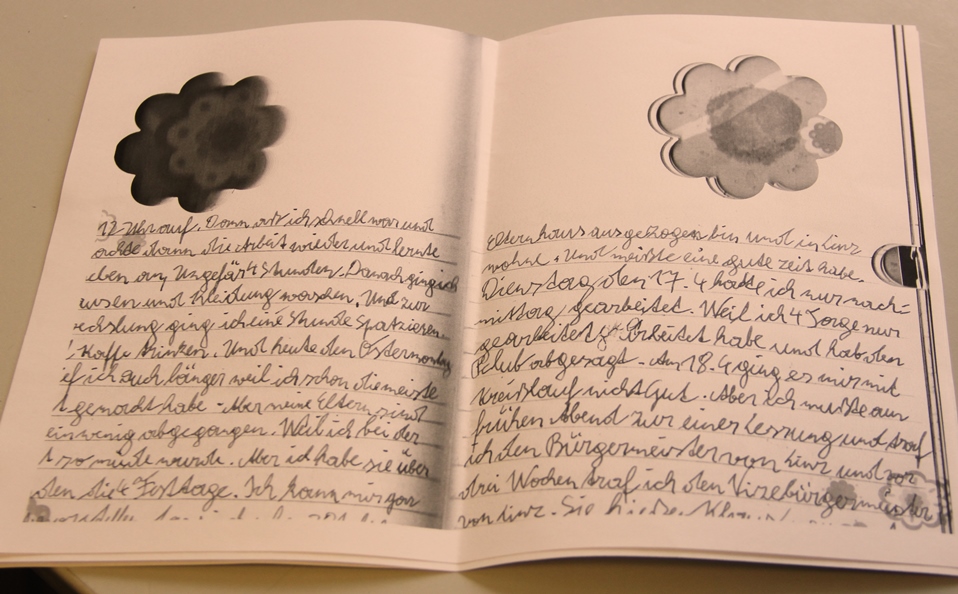 12 Uhr auf. Dann aß ich schnell was und
dann die Arbeit wieder und lernte
eben an, Ungefär 4 Stunden. Danach ging ich
und Kleidung waschen. Und zur
ging ich eine Stunde Spatzieren.
Kaffe trinken. Und heute den Ostermontag
ich auch länger weil ich schon die meiste
gemacht habe. Aber meine Eltern sind
ein wenig abgegangen. Weil ich bei der
wurde. Aber ich habe sie über
den die Festtage. Ich kann mir gar
Elternhaus ausgezogen bin und in Linz
wohne. Und meiste eine gute Zeit habe.
Dienstag den 17.4 hatte ich nur nach-
mittag gearbeitet. Weil ich 4 Tage nur
gearbeitet habe und hab den
Club abgesagt. Am 18.4 ging es mir mit
Kreißlauf nicht Gut. Aber ich mußte am
frühen Abend zur einer Lessung und traf
ich den Bürgermeister von Linz und vor
drei Wochen traf ich den Vizebürgermeister
von Linz. Sie